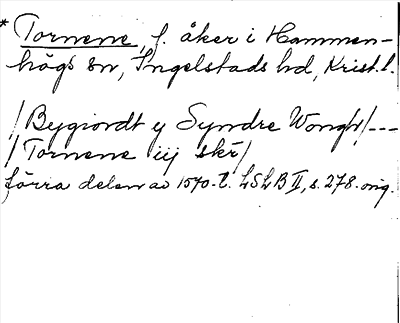 * Tornene, f. åker i Hammen-
högs sn, Ingelstads hd, Krist. l.
/Bygiordt y Syndre Wongh/---
/Tornene iij skr/
förra delen av 1570-t. LSLB II, s. 278. orig.